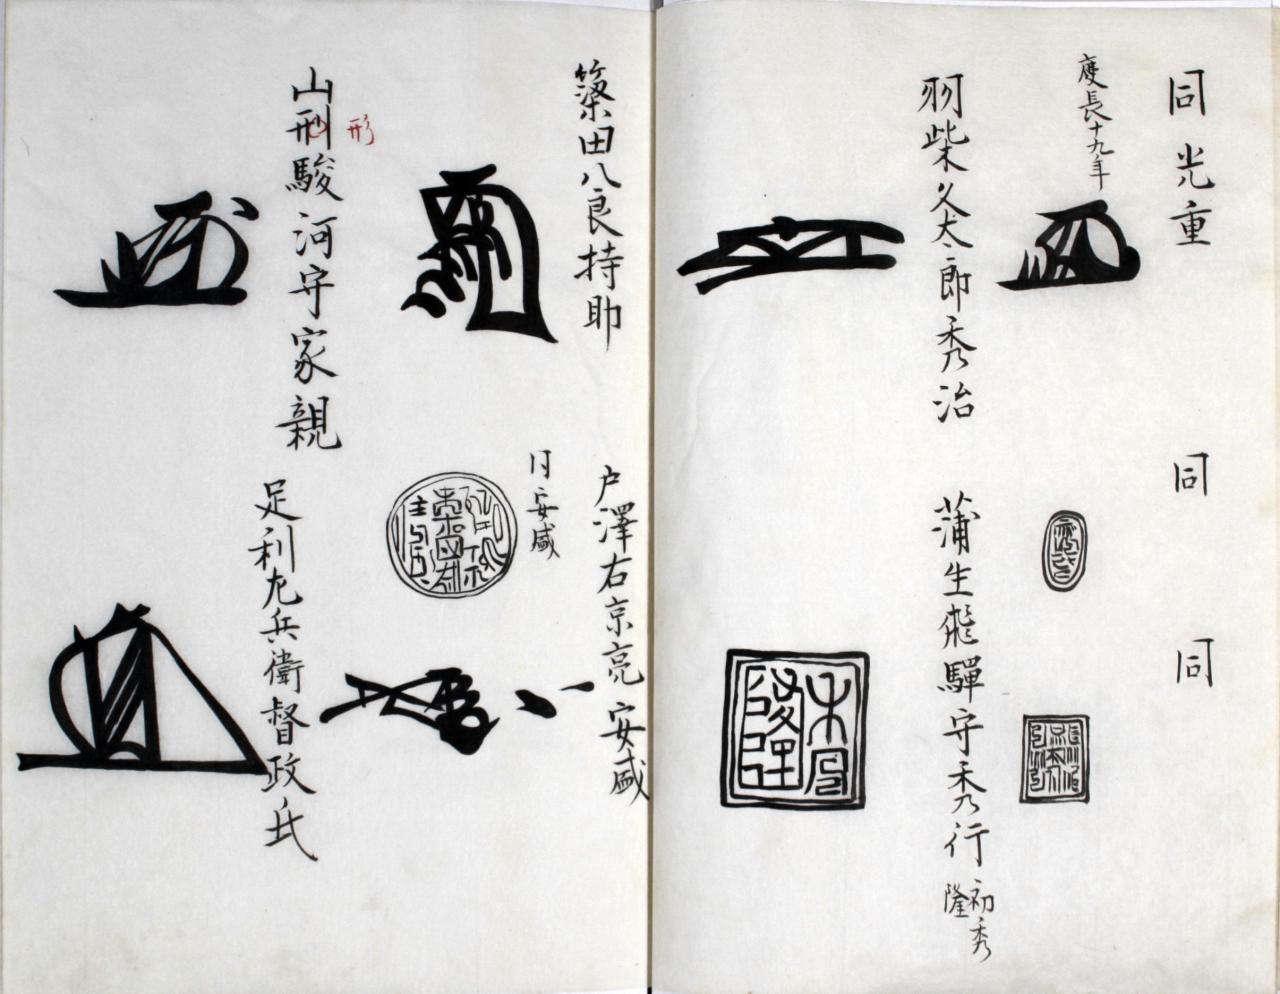 同光重
慶長十九年
同
同
羽柴久太郎秀治
蒲生飛騨守秀行
初秀
隆
築田八良持助
戸澤右京亮安盛
同安盛
山刑駿河守家親
形
足利左兵衛督政氏